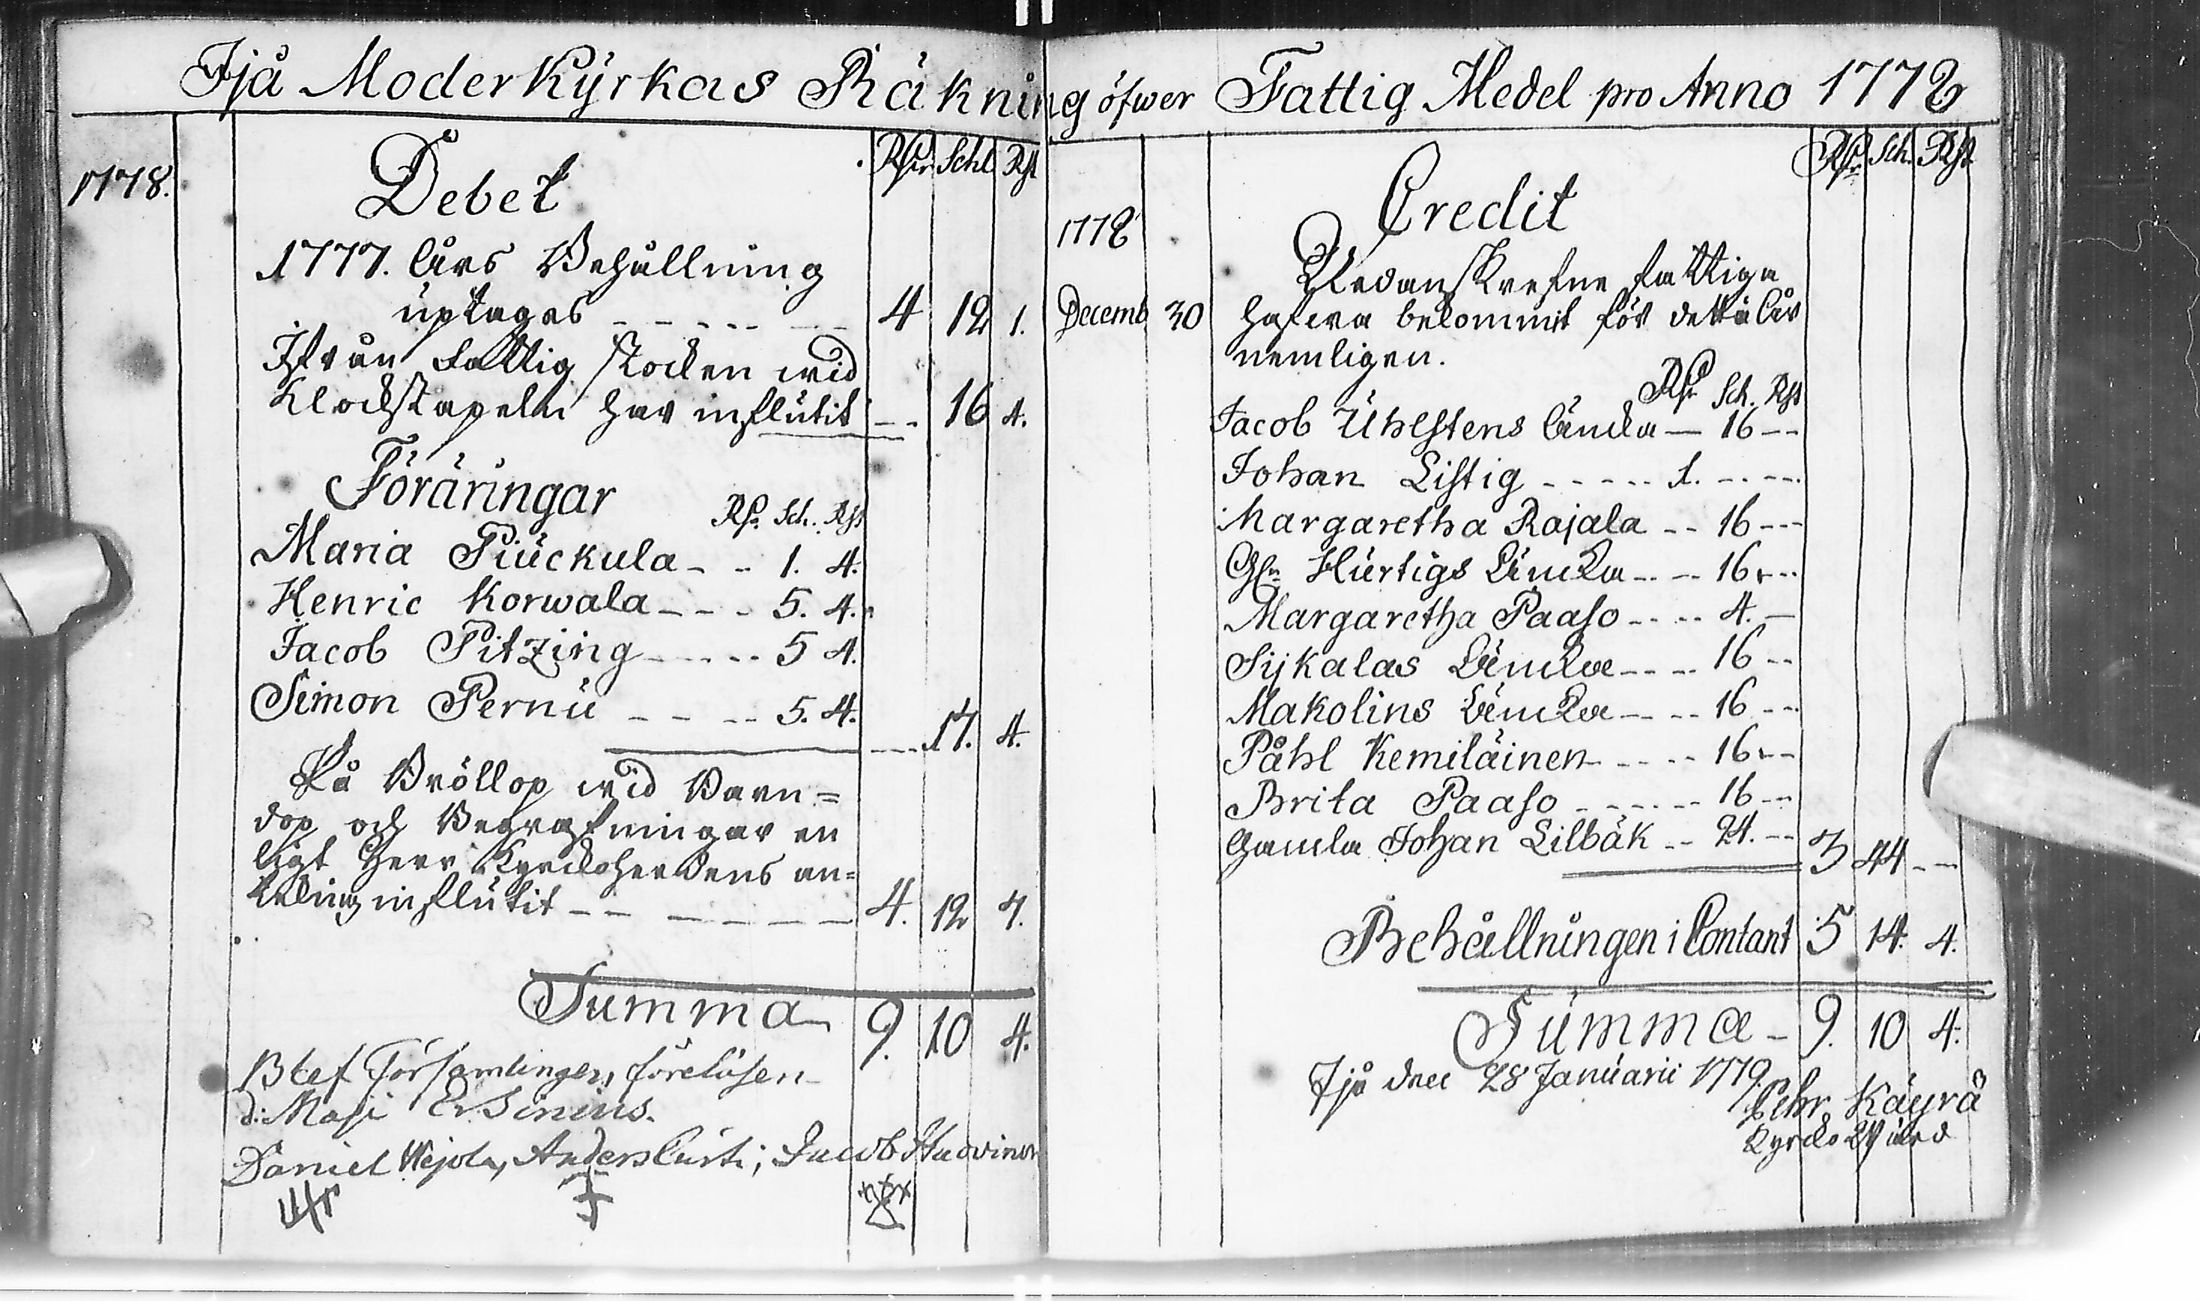 Ijå Moderkÿrkas Räkning öfwer Fattig Medel pro Anno 1778
Rdr Schl Rst
1778. Debet
1777. Års Behållning
uptages 4 12 1.
Ifrån Fattig stocken wid
Klockstapeln har influtit 16 4.
Föräringar
Rdr Sch. Rst
Maria Piuckula 1. 4.
Henric Korwala 5. 4.
Jacob Pitzing 5 4.
Simon Pernu 5. 4.
17. 4.
På Bröllop wid Barn=
dop och Begrafningar en
ligt Herr Kyrckoherdens an=
tekning influtit 4. 12 7.
Summa 9. 10 4.
Församlingen
Daniel Anders Jacob
Rdr Sch. Rst
1778 Credit
Nedanskrefne fattige
Decemb 30 hafwa bekommit för detta år
nemligen.
Rdr Sch. Rst
Jacob Uhlstens Äncka 16
Johan Listig 1.
Margaretha Rajala 16
Hurtigs Äncka 16
Margaretha Paaso 4.
Sijkalas Äncka 16
Makolins Äncka 16
Påhl Kemiläinen 16
Brita Paaso 16
Gamla Johan Lilbäk 24. 3 44
Behållningen i Contant 5 14. 4.
Summa 9. 10 4.
Ijå den 28 Januarii 1779.
Pehr Käyrä
Kyrcko Wärd